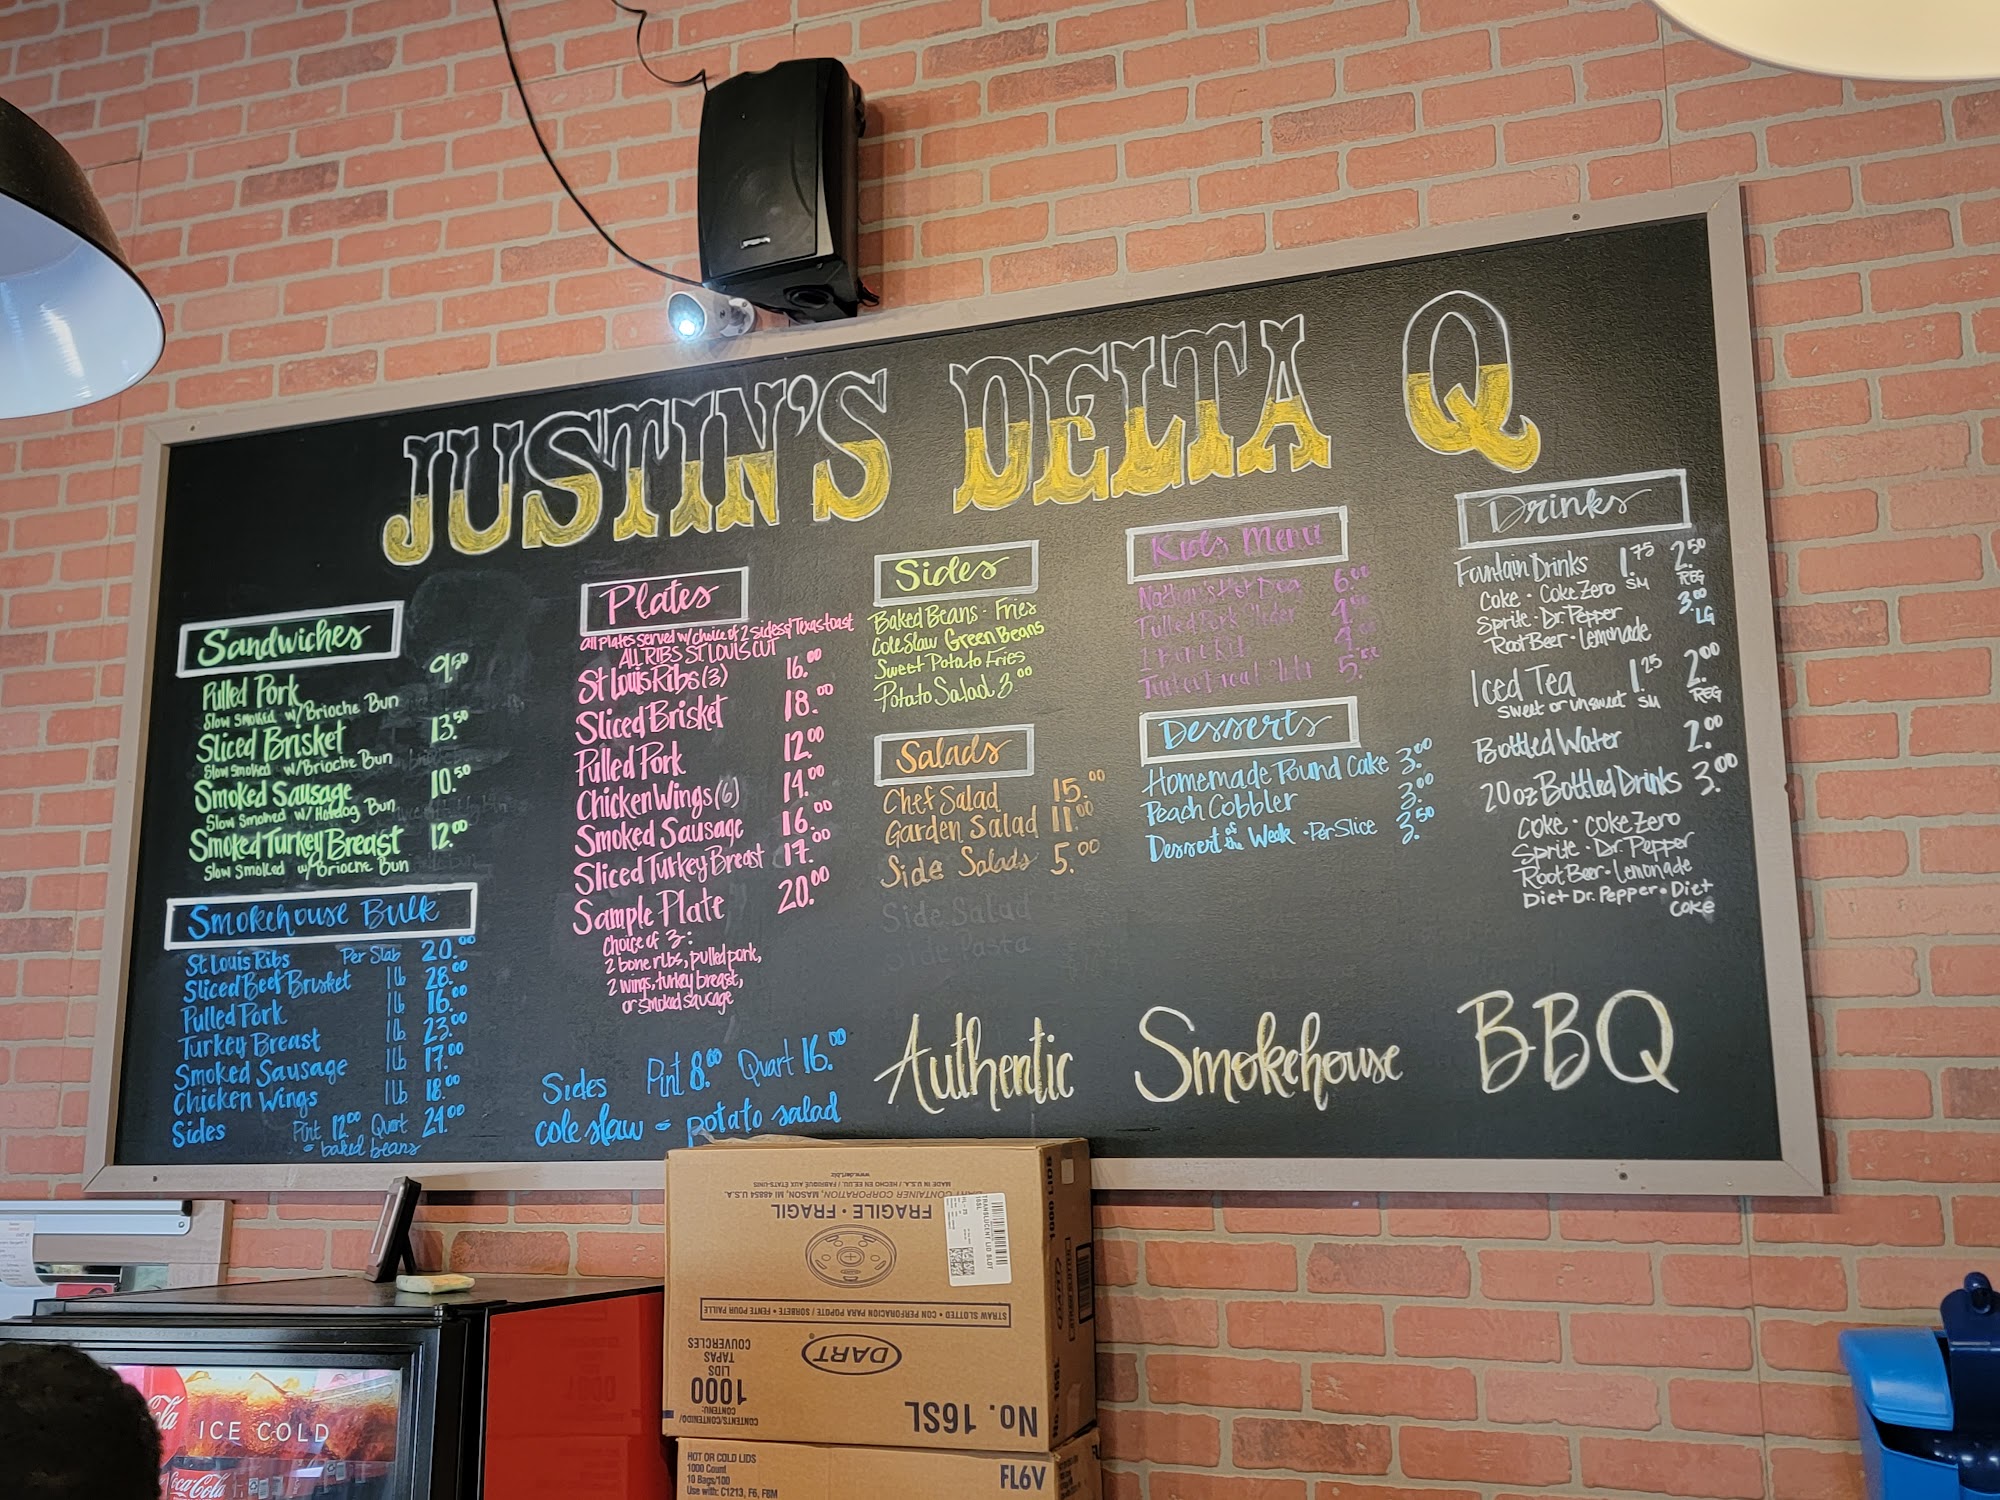 JUSTIN'S DELTA Q
Sandwiches
Pulled Pork 9.50
Slow Smoked w/Brioche Bun
Sliced Brisket 13.50
Slow Smoked w/Brioche Bun
Smoked Sausage 10.50
Slow Smoked w/ Hotdog Bun
Smoked Turkey Breast 12.00
Slow Smoked w/Brioche Bun
Smokehouse Bulk
St Louis Ribs Per Slab 20.00
Sliced Beef Brisket 1 lb 28.00
Pulled Pork 1 lb 16.00
Turkey Breast 1 lb 23.00
Smoked Sausage 1 lb 17.00
Chicken Wings 1 lb 18.00
Sides Pint 12.00 Quart 24.00
- baked beans
Plates
All plates served w/choice of 2 sides & Texas toast
ALL RIBS ST LOUIS CUT
St Louis Ribs (3) 16.00
Sliced Brisket 18.00
Pulled Pork 12.00
Chicken Wings (6) 14.00
Smoked Sausage 16.00
Sliced Turkey Breast 17.00
Sample Plate 20.00
Choice of 3:
2 bone ribs, pulled pork,
2 wings, turkey breast,
or smoked sausage
Sides Pint 8.00 Quart 16.00
cole slaw - potato salad
Sides
Baked Beans · Fries
Cole Slaw Green Beans
Sweet Potato Fries
Potato Salad 3.00
Salads
Chef Salad 15.00
Garden Salad 11.00
Side Salads 5.00
Side Salad
Side Pasta
Kids Menu
Nathan's Hot Dog 6.00
Pulled Pork Slider
1 Bone Rib
Desserts
Homemade Pound Cake 3.00
Peach Cobbler 3.00
Dessert of the Weak · Per Slice 3.50
Drinks
Fountain Drinks 1.75 SM 2.50 REG 3.00 LG
Coke · Coke Zero
Sprite · Dr. Pepper
Root Beer · Lemonade
Iced Tea 1.25 SM 2.00 REG
sweet or unsweet
Bottled Water 2.00
20 oz Bottled Drinks 3.00
Coke · Coke Zero
Sprite · Dr. Pepper
Root Beer · Lemonade
Diet Dr. Pepper · Diet
Coke
Authentic Smokehouse BBQ
MADE IN U.S.A. / HECHO EN EE.UU. / FABRIQUÉ AUX ÉTATS-UNIS
DART CONTAINER CORPORATION, MASON, MI 48854 U.S.A.
FRAGILE · FRAGIL
TRANSLUCENT LID SLOT
16SL
STRAW SLOTTED • CON PERFORACION PARA POPOTE / SORBETE • FENTE POUR PAILLE
DART
1000
LIDS
TAPAS
COUVERCLES
No. 16SL
1000 LIDS
HOT OR COLD LIDS
1000 Count
10 Bags/100
Use with: C1213, F6, F8M
FL6V
ICE COLD
Coca-Cola